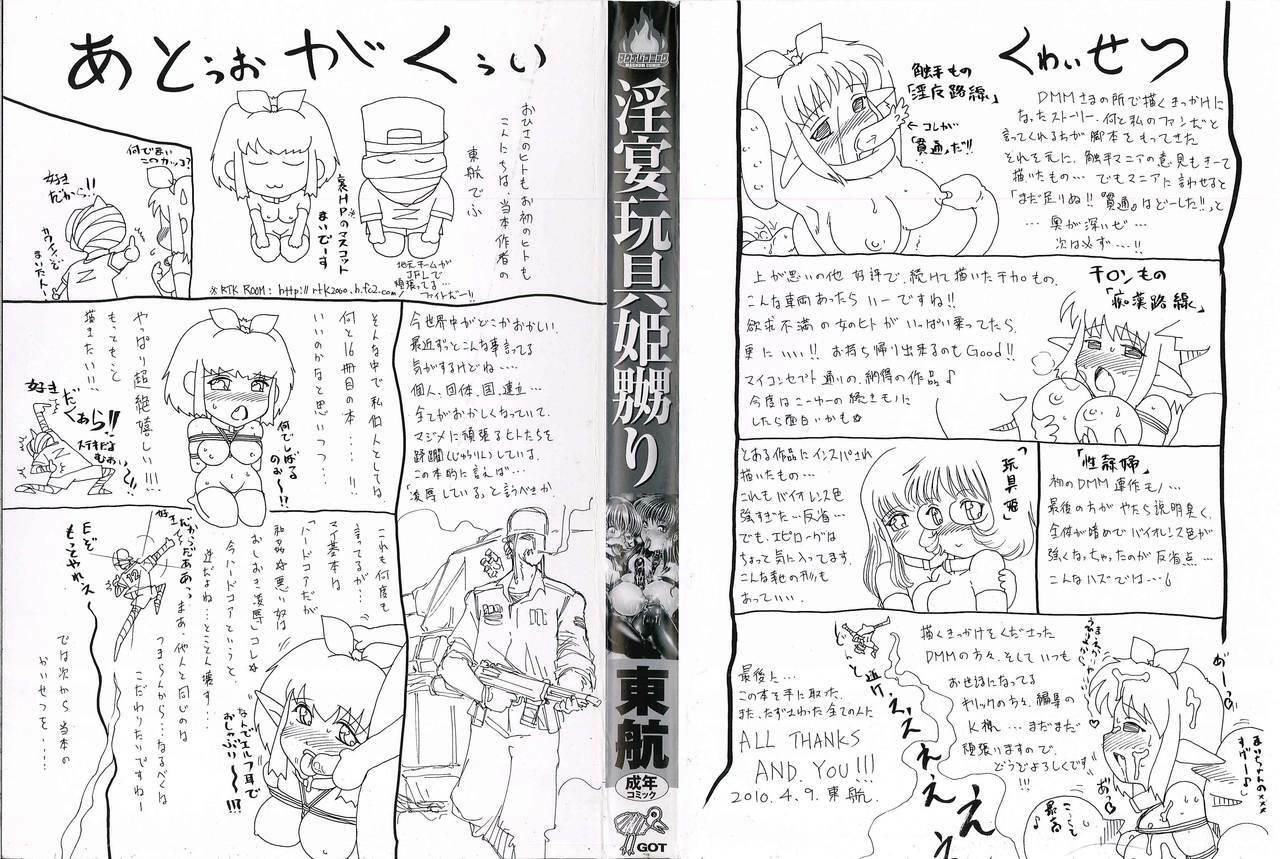 あとぅおがくぅい
おひさのヒトもお初のヒトも
こんにちは、当本作者の
東航でふ
哀HPのマスコット
まいでーす
地元チームが
JFLで
頑張ってる…
ファイトだー!!
※RTK ROOM: http://rtk2000.h.fc2.com/
何でまい
このカッコ?
好き
だから!!
今世界中がどこかおかしい。
最近ずっとこんな事言ってる
気がするけどね…
個人、団体、国、連立…
全てがおかしくなっていて、
マジメに頑張るヒトたちを
蹂躙(じゅうりん)している。
この本的に言えば…
「凌辱している。」と言うべきか
そんな中で私個人としては
何と16冊目の本…!!
いいのかなと思いつつ…
やっぱり超絶嬉しい!!!
もっともっと
描きたい!!
何でしばる
のぉ〜!?
好き
だくぁら!!
これも何度も
言ってるが…
マイ基本は
「ハードコアだが
和姦☆悪い奴は
おしおき、凌辱」コレ☆
今ハードコアというと、
逆だよね…とことん壊す…
まあ、他人と同じのは
つまらんから…なるべくは
こだわりたいですねー
では次から当本の
かいせつを…
好きだからだあああっっ
Eぞ
もっとやれェ〜
なんでエルフ耳で
おしゃぶり〜!!?
マグナムコミック
MAGNUM COMIC
淫宴玩具姫嬲り
東航
成年
コミック
GOT
くわいせつ
触手もの
「淫皮路線」
←コレが
「貫通」だ!!
DMMさまの所で描くきっかけに
なったストーリー。何と私のファンだと
言ってくれる方が脚本をもってきた
それを元に、触手マニアの意見もきーて
描いたもの…でもマニアに言わせると
「まだ足りぬ!!『貫通』はどーした!!」と
…奥が深いぜ…
次は必ず…!!
チカンもの
「痴漢路線」
上が思いの他好評で、続けて描いたチカンもの。
こんな車両あったらいーですね!!
欲求不満の女のヒトがいっぱい乗ってたら、
更にいい!! お持ち帰り出来るのもGood!!
マイコンセプト通りの、納得の作品♪
今度はこーゆーの続きものに
したら面白いかも☆
「玩具姫」
とある作品にインスパされ
描いたもの…
これもバイオレンス色
強すぎた…反省…
でも、エピローグは
ちょっと気に入ってます。
こんな形の和も
あっていい…
「性隷婦」
初のDMM連作もの…
最後の方がやたら説明臭く、
全体が暗めでバイオレンス色が
強くなっちゃったのが反省点…
こんなハズでは…
描くきっかけをくださった
DMMの方々、そしていつも
お世話になってる
キリックの方々、編集の
K様…まだまだ
頑張りますので、
どうぞよろしくです
最後に…
この本を手に取った、
また、たずさわった全ての人に
ALL THANKS
AND YOU!!!
2010.4.9.東航.
と逝けェェェェェ